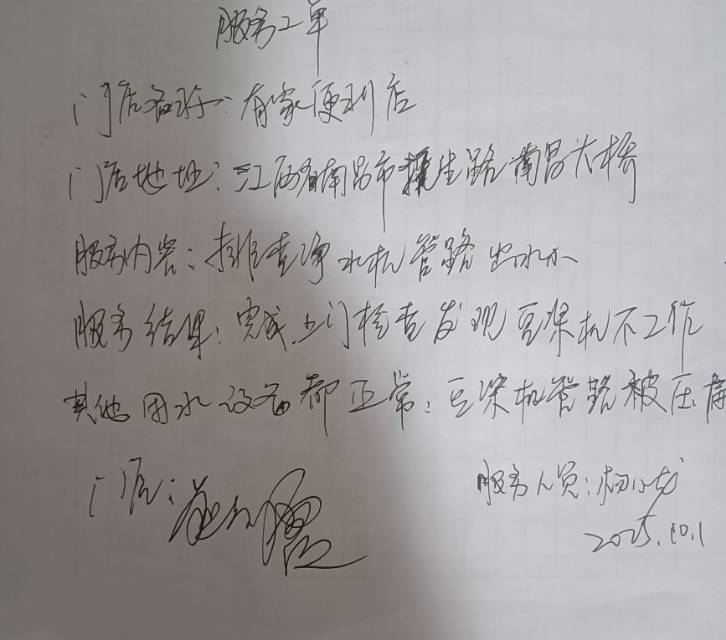 服务工单
门店名称:有家便利店
门店地址:江西省南昌市生路南昌大桥
服务内容:排查净水机管路出水小
服务结果:完成上门检查发现豆浆机不工作
其他用水设备都正常:豆浆机管路被压
门店:
服务人员:杨小龙
2025.10.1